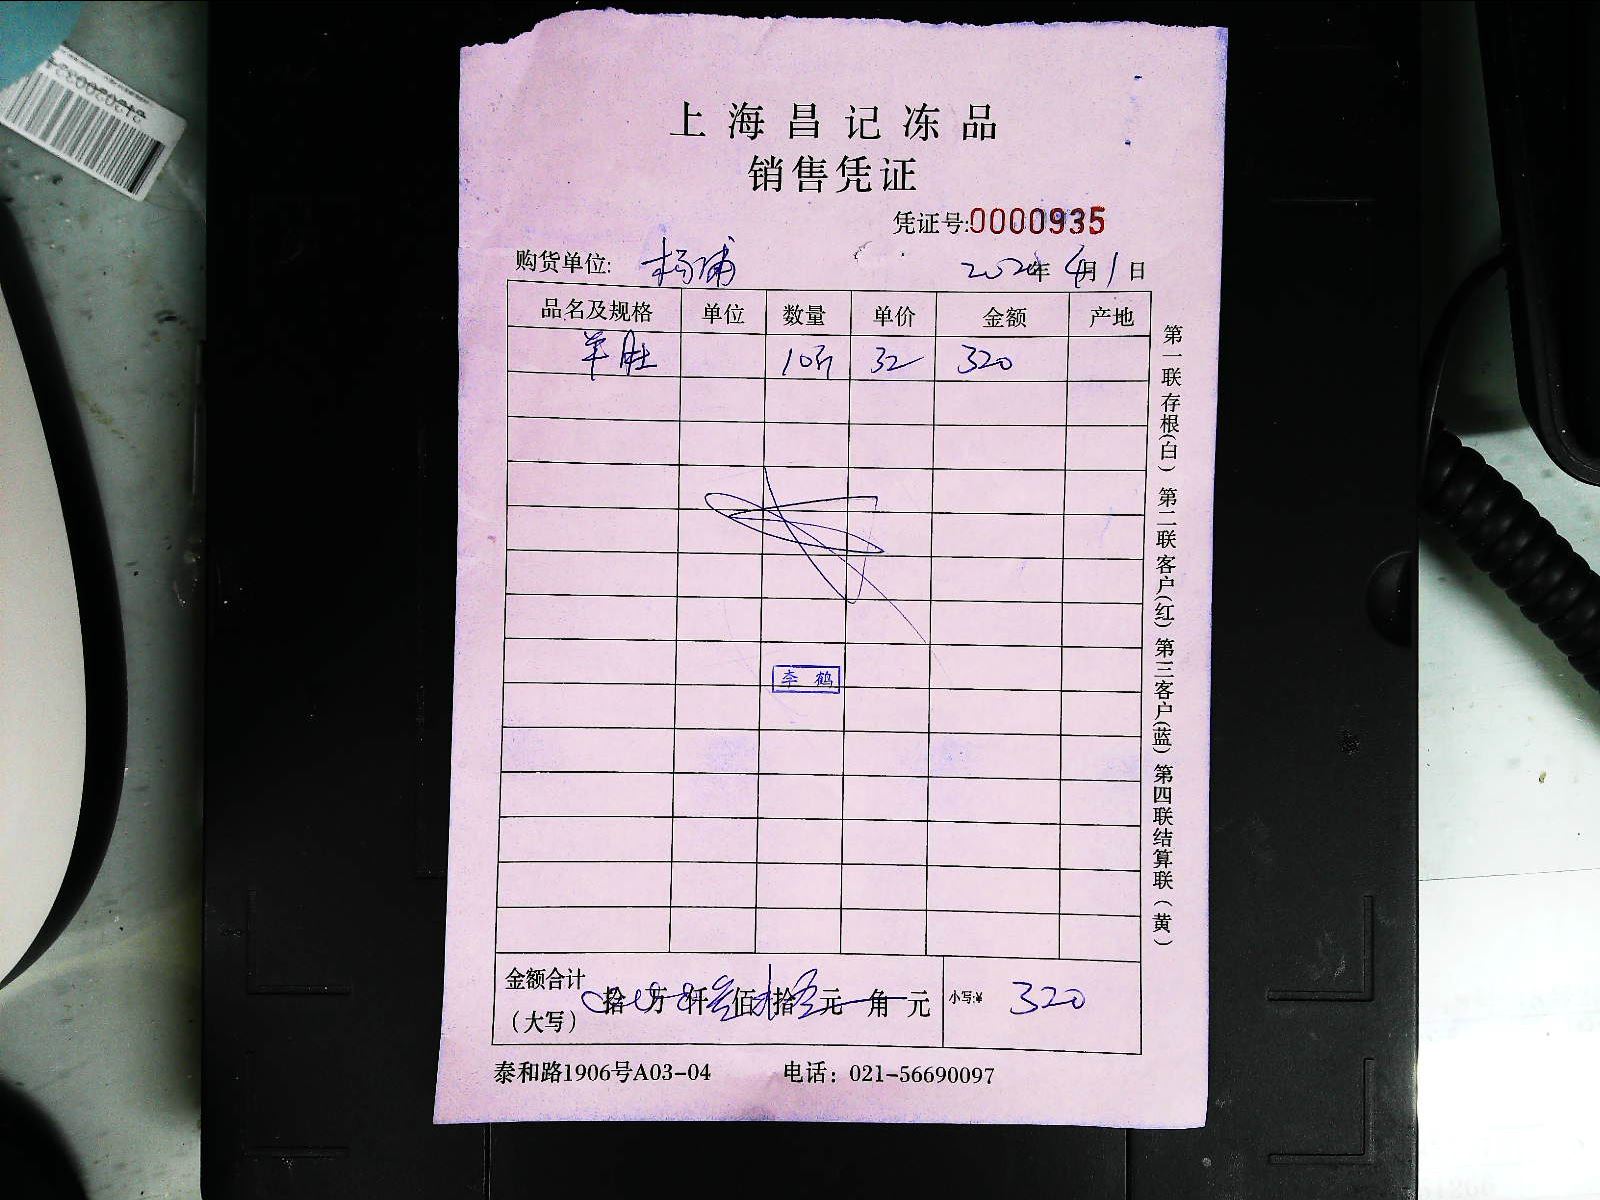 上海昌记冻品
销售凭证
凭证号:0000935
购货单位: 杨浦 2020年 4月1日
品名及规格 单位 数量 单价 金额 产地
羊肚 10斤 32 320
李鹤
金额合计
(大写) 拾 万 仟叁佰 拾 元 角 元 小写:¥ 320
泰和路1906号A03-04 电话: 021-56690097
第一联存根(白) 第二联客户(红) 第三客户(蓝) 第四联结算联(黄)